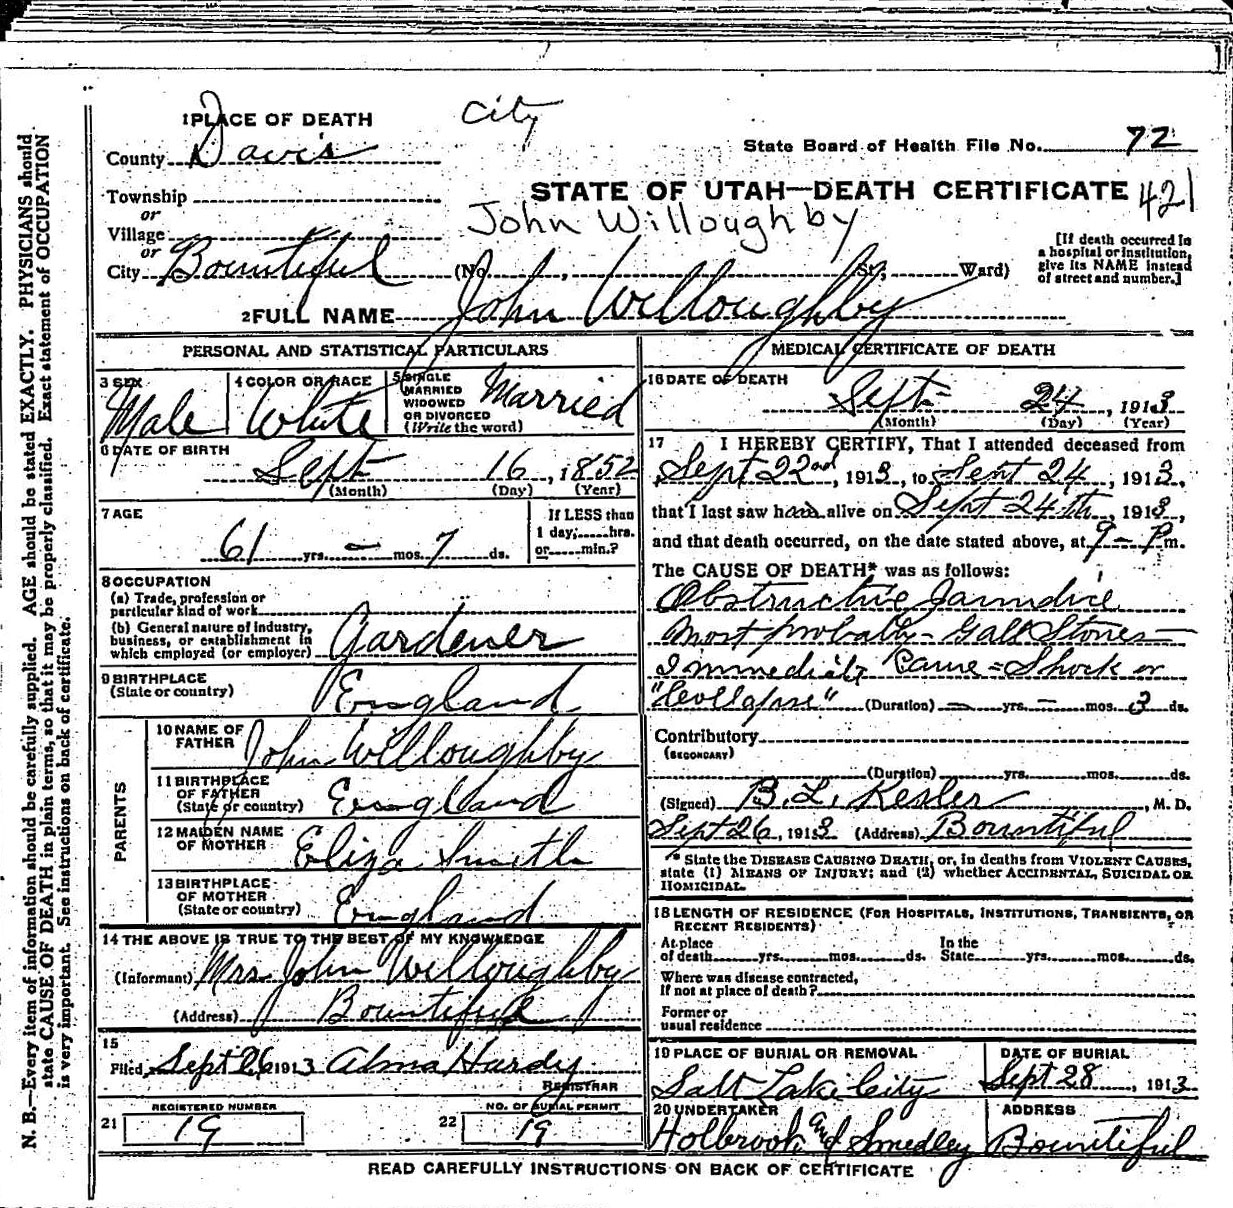 City
1 PLACE OF DEATH
County Davis
State Board of Health File No. 72
Township
or
Village
or
City Bountiful
STATE OF UTAH—DEATH CERTIFICATE 421
John Willoughby
(No. , St., Ward)
[If death occurred in
a hospital or institution,
give its NAME instead
of street and number.]
2 FULL NAME John Willoughby
PERSONAL AND STATISTICAL PARTICULARS
3 SEX
Male
4 COLOR OR RACE
White
5 SINGLE
MARRIED
WIDOWED
OR DIVORCED
(Write the word)
Married
6 DATE OF BIRTH
Sept 16, 1852
(Month) (Day) (Year)
7 AGE
61 yrs. — mos. 7 ds.
If LESS than
1 day, hrs.
or min.?
8 OCCUPATION
(a) Trade, profession or
particular kind of work
(b) General nature of industry,
business, or establishment in
which employed (or employer)
Gardener
9 BIRTHPLACE
(State or country)
England
PARENTS
10 NAME OF
FATHER
John Willoughby
11 BIRTHPLACE
OF FATHER
(State or country)
England
12 MAIDEN NAME
OF MOTHER
Eliza Smith
13 BIRTHPLACE
OF MOTHER
(State or country)
England
14 THE ABOVE IS TRUE TO THE BEST OF MY KNOWLEDGE
(Informant) Mrs John Willoughby
(Address) Bountiful
15
Filed Sept 26 1913 Alma Hardy
REGISTRAR
REGISTERED NUMBER
21 19
NO. OF BURIAL PERMIT
22 19
MEDICAL CERTIFICATE OF DEATH
16 DATE OF DEATH
Sept 24, 1913
(Month) (Day) (Year)
17 I HEREBY CERTIFY, That I attended deceased from
Sept 22nd, 1913, to Sept 24, 1913,
that I last saw him alive on Sept 24th, 1913,
and that death occurred, on the date stated above, at 9 - P m.
The CAUSE OF DEATH* was as follows:
Obstructive Jaundice
Most probably - Gall Stones
Immediate Cause = Shock or
"Collapse" (Duration) — yrs. — mos. 3 ds.
Contributory
(SECONDARY)
(Duration) yrs. mos. ds.
(Signed) B. L. Kesler, M. D.
Sept 26, 1913 (Address) Bountiful
* State the DISEASE CAUSING DEATH, or, in deaths from VIOLENT CAUSES,
state (1) MEANS OF INJURY; and (2) whether ACCIDENTAL, SUICIDAL OR
HOMICIDAL.
18 LENGTH OF RESIDENCE (FOR HOSPITALS, INSTITUTIONS, TRANSIENTS, OR
RECENT RESIDENTS)
At place
of death yrs. mos. ds.
In the
State yrs. mos. ds.
Where was disease contracted,
If not at place of death?
Former or
usual residence
19 PLACE OF BURIAL OR REMOVAL
Salt Lake City
DATE OF BURIAL
Sept 28, 1913
20 UNDERTAKER
Holbrook and Smedley
ADDRESS
Bountiful
READ CAREFULLY INSTRUCTIONS ON BACK OF CERTIFICATE
N. B.—Every item of information should be carefully supplied. AGE should be stated EXACTLY. PHYSICIANS should
state CAUSE OF DEATH in plain terms, so that it may be properly classified. Exact statement of OCCUPATION
is very important. See instructions on back of certificate.